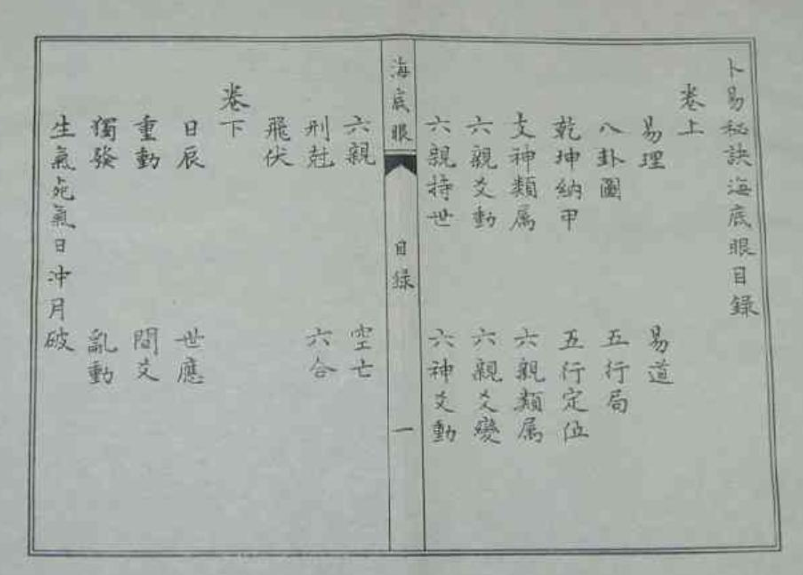 卜易秘訣海底眼目録
卷上
易理 易道
八卦圖 五行局
乾坤納甲 五行定位
支神類属 六親類属
六親爻動 六親爻變
六親持世 六神爻動
海底眼 目録 一
六親 空亡
刑尅 六合
飛伏
卷下
日辰 世應
重動 間爻
獨發 亂動
生氣死氣日冲月破